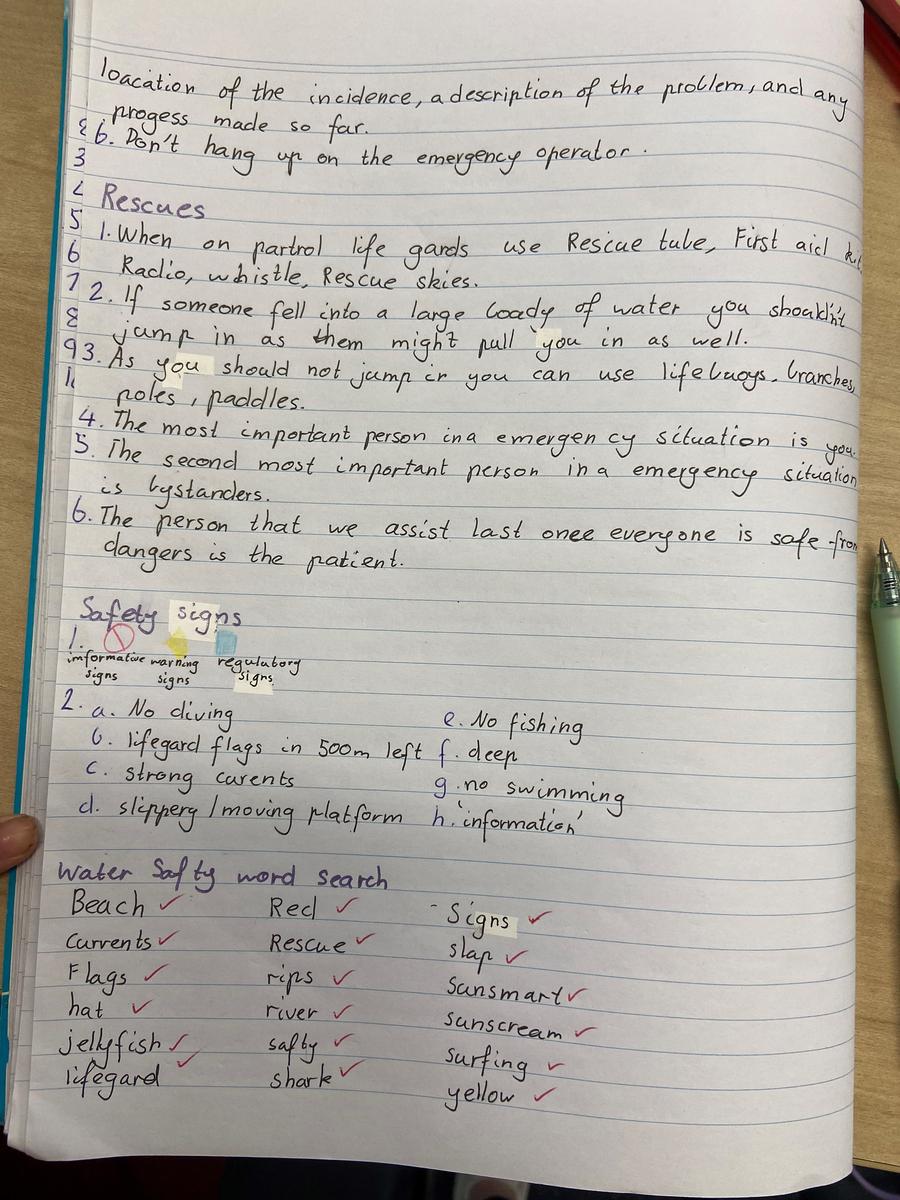 loacation of the incidence, a description of the problem, and any
progess made so far.
6. Don't hang up on the emergency operator.
Rescues
1. When on partrol life gards use Rescue tube, First aid kit,
Radio, whistle, Rescue skies.
2. If someone fell into a large boady of water you shouldn't
jump in as them might pull you in as well.
3. As you should not jump in you can use lifebuoys, branches,
poles, paddles.
4. The most important person in a emergency situation is you.
5. The second most important person in a emergency situation
is bystanders.
6. The person that we assist last once everyone is safe from
dangers is the patient.
Safety signs
1.
informative signs
warning signs
regulatory signs
2. a. No diving
b. lifegard flags in 500m left
c. strong curents
d. slippery / moving platform
e. No fishing
f. deep
g. no swimming
h. 'information'
Water Safty word search
Beach
Currents
Flags
hat
jellyfish
lifegard
Red
Rescue
rips
river
safty
shark
- Signs
slap
Sunsmart
sunscream
surfing
yellow